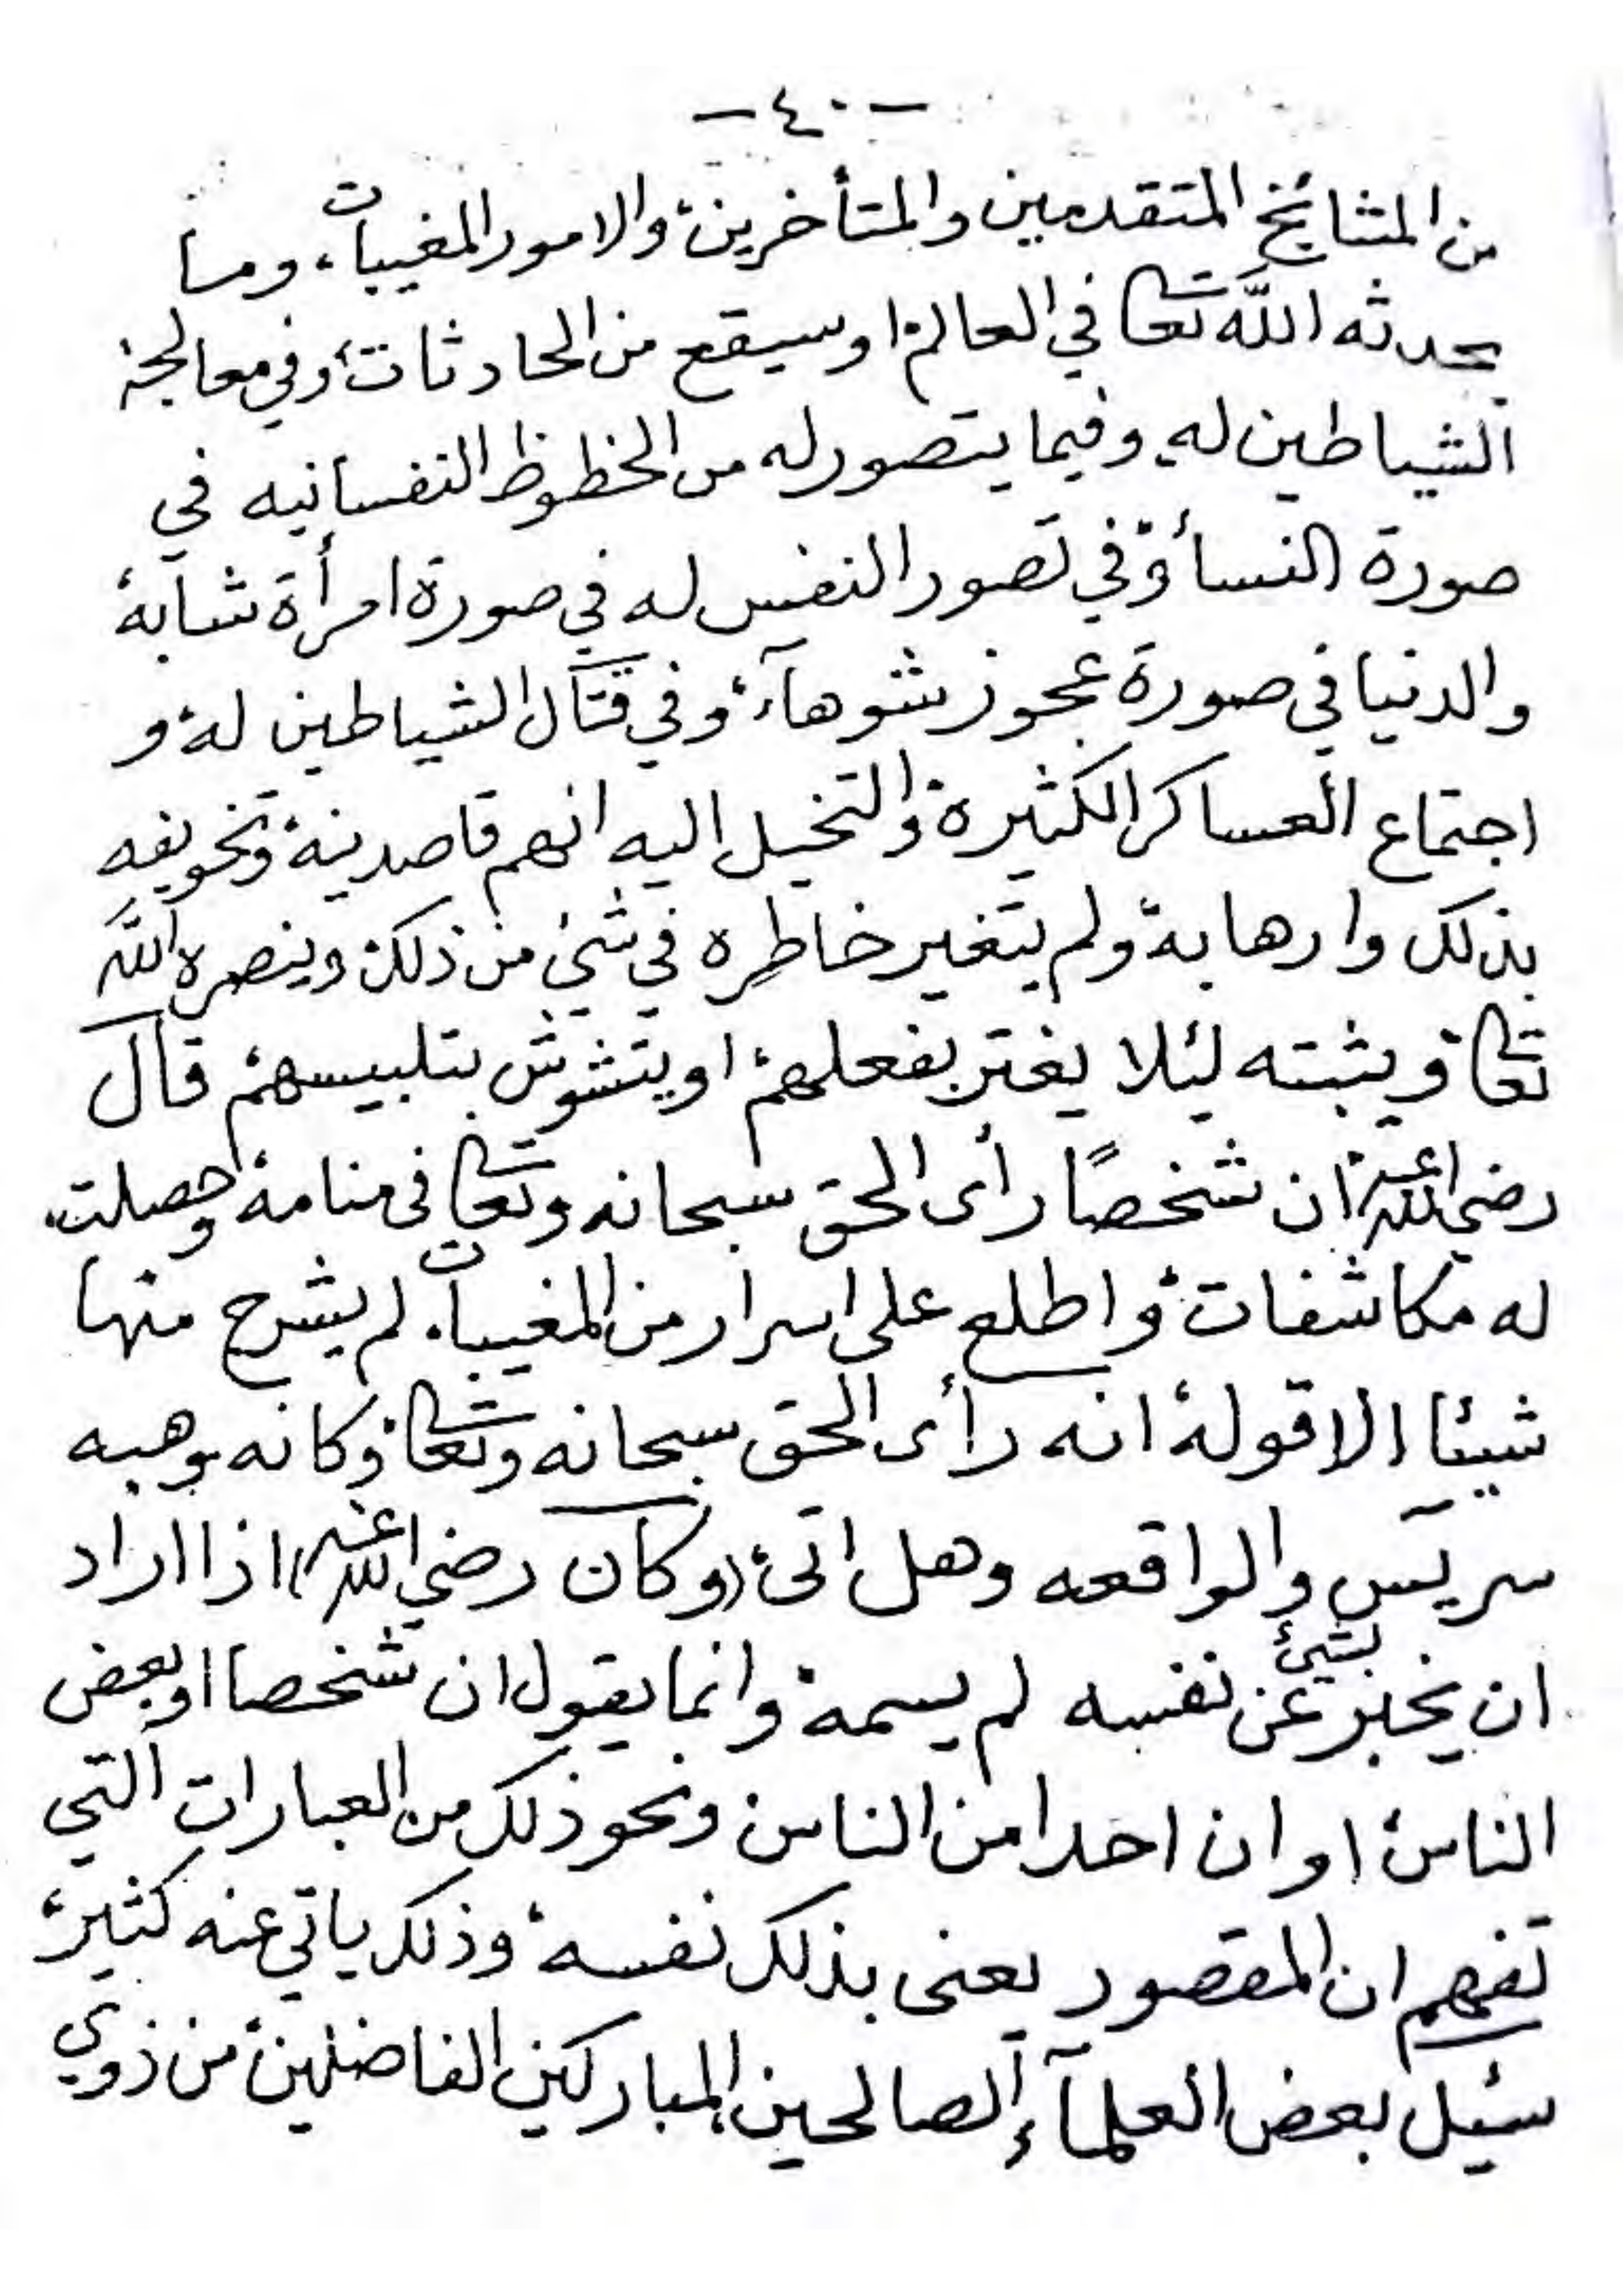 -٤٠-
من المشائخ المتقدمين والمتأخرين، والامور المغيبات، وما
يحدثه اللَّه تعالى في العالم، او سيقع من الحادثات، وفي معالجة
الشياطين له، وفيما يتصور له من الحظوظ النفسانيه في
صورة النسأ، وفي تصور النفس له في صورة امرأة شآبة،
والدنيا في صورة عجوز شوهآء، وفي قتال الشياطين له، و
اجتماع العساكر الكثيرة، والتخيل اليه انهم قاصدينه، وتخويفه
بذلك وارهابه، ولم يتغير خاطره في شيء من ذلك، وينصره اللَّه
تعالى، ويثبته لئلا يغتر بفعلهم، او يتشوش بتلبيسهم، قال
رضي الله عنه، ان شخصًا رأى الحق سبحانه وتعالى فى منامه، وحصلت
له مكاشفات، واطلع على اسرار من المغيبات، لم يشرح منها
شيئا الا قوله، انه رأى الحق سبحانه وتعالى، وكانه يوهبه
سر يآس والواقعه وهل اتى، (وكان رضي الله عنه) اذا اراد
ان يخبر بشيئ عن نفسه لم يسمه، وانما يقول ان شخصا او بعض
الناس، او ان احدا من الناس ونحو ذلك من العبارات التي
تفهم ان المقصود يعنى بذلك نفسه، وذلك ياتي عنه كثير،
سئيل بعض العلمآء الصالحين المباركين الفاضلين، من ذوي